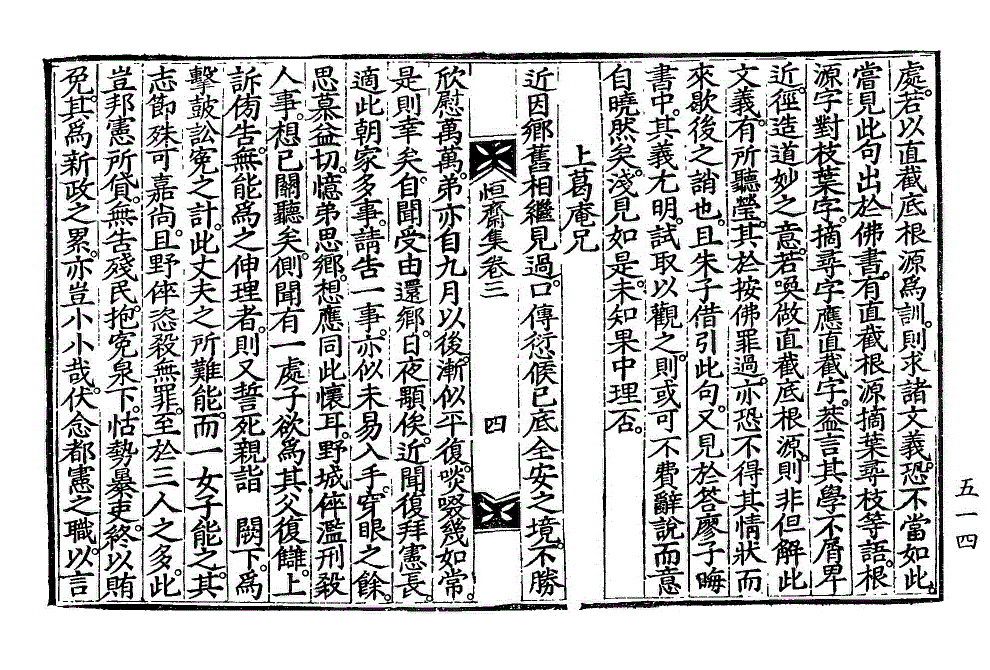 處。若以直截底根源爲訓。則求諸文義。恐不當如此。
嘗見此句出於佛書。有直截根源摘葉尋枝等語。根
源字對枝葉字。摘尋字應直截字。蓋言其學不屑卑
近。徑造道妙之意。若喚做直截底根源。則非但解此
文義。有所聽瑩。其於按佛罪過。亦恐不得其情狀而
來歇後之誚也。且朱子借引此句。又見於答廖子晦
書中。其義尤明。試取以觀之。則或可不費辭說而意
自曉然矣。淺見如是。未知果中理否。
上葛庵兄
近因鄕舊相繼見過。口傳衍候已底全安之境。不勝
恒齋集卷三
四
欣慰萬萬。弟亦自九月以後。漸似平復。啖啜幾如常。
是則幸矣。自聞受由還鄕。日夜顒俟。近聞復拜憲長。
適此朝家多事。請告一事。亦似未易入手。穿眼之餘。
思慕益切。憶弟思鄕。想應同此懷耳。野城倅濫刑殺
人事。想已關聽矣。側聞有一處子欲爲其父復讎。上
訴傍告。無能爲之伸理者。則又誓死親詣 闕下。爲
擊鼓訟寃之計。此丈夫之所難能。而一女子能之。其
志節殊可嘉尙。且野倅恣殺無罪。至於三人之多。此
豈邦憲所貸。無告殘民。抱寃泉下。怙勢暴吏。終以賄
免。其爲新政之累。亦豈小小哉。伏念都憲之職。以言
五一四